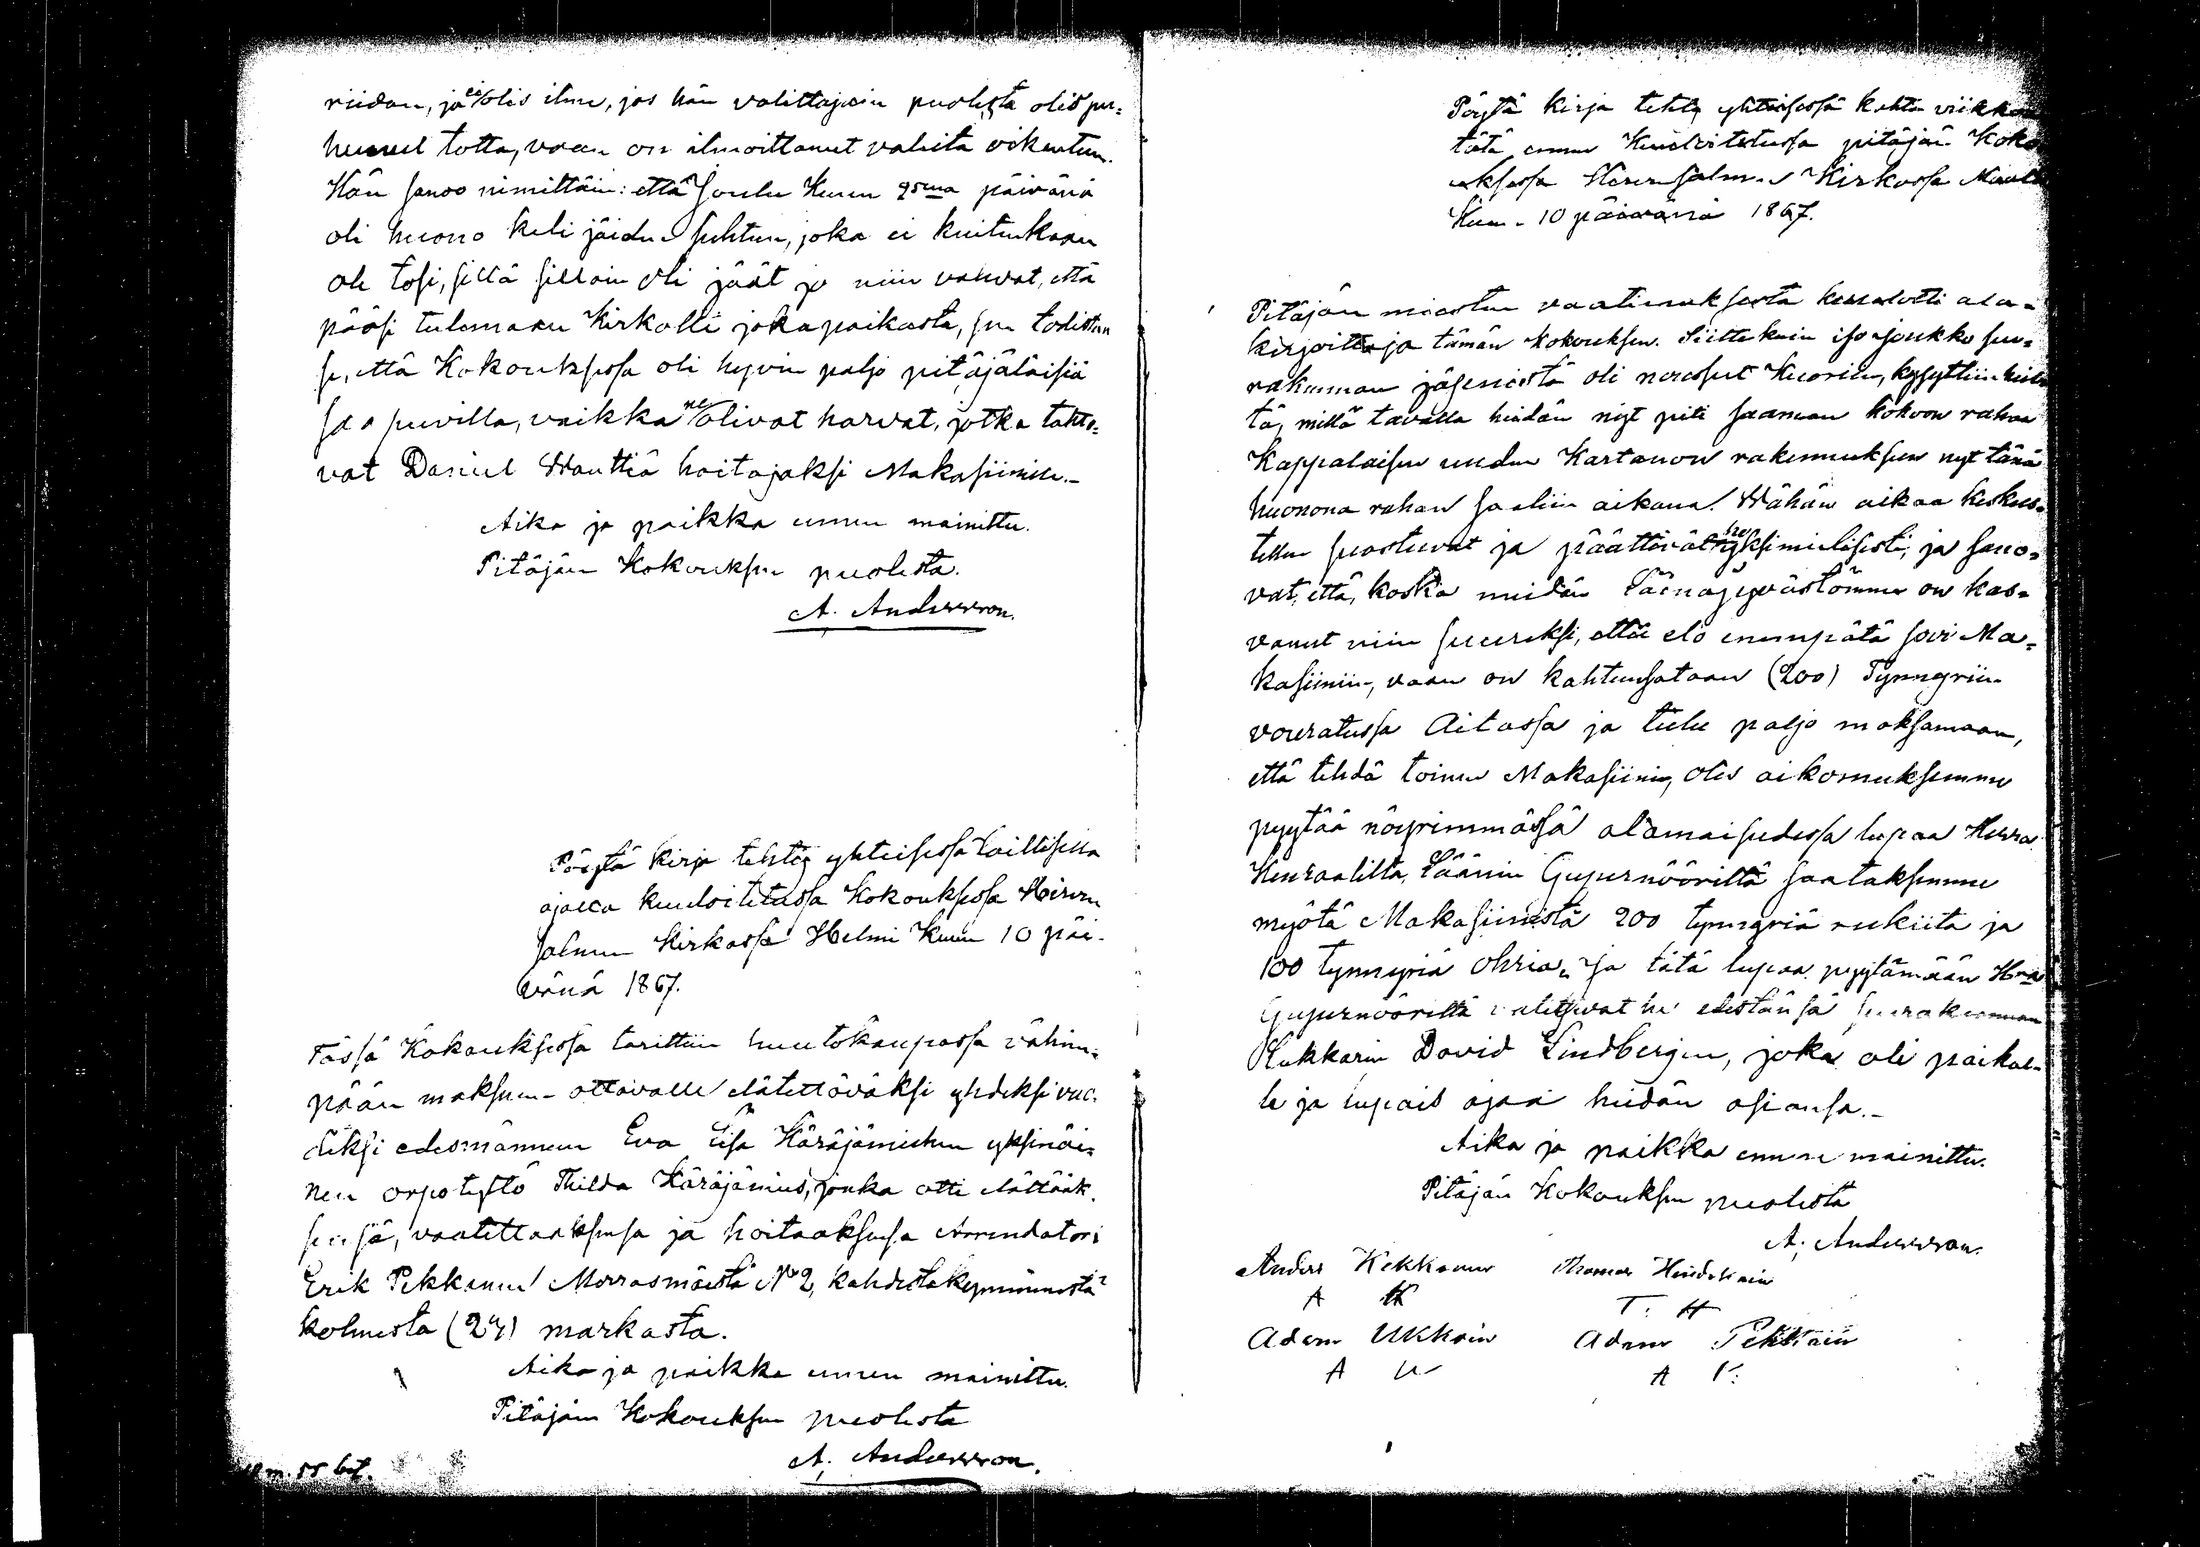 riidan, ja ei olis ilme, jos hän valittajain puolesta olis pu=
hunut totta, vaan on ilmoittanut valheita oikeuteen.
Hän sanoo nimittäin: että Joulu Kuun 25na päivänä
oli huono keli jäiden suhteen, joka ei kuitenkaan
ole tosi, sillä silloin oli jäät jo niin vahvat, että
pääsi tulemaan Kirkolle joka paikasta, sen todistaa
se, että Kokouksessa oli hyvin paljo pitäjäläisiä
saapuvilla, vaikka ne olivat harvat, jotka tahto=
vat Daniel Wauttiä hoitajaksi Makasiiniin.-
Aika ja paikka ennen mainittu.
Pitäjän Kokouksen puolesta.
A. Andersson.
Pöytä kirja tehty yhteisessä laillisella
ajalla kuuloitetussa Kokouksessa Hirven
salmen Kirkossa Helmi Kuun 10 päi-
vänä 1867.
Tässä Kokouksessa tarittiin huutokaupassa vähim=
pään maksuun ottavalle elätettäväksi yhdeksi vuo=
deksi edesmänneen Eva Lisa Käräjämiehen yksinäi=
nen orpotyttö Thilda Käräjämies, jonka otti elättääk=
sensä, vaatettaaksensa ja hoitaaksensa Arrendatori
Erik Pekkanen Morrasmäestä No 2, kahdestakymmenestä
kolmesta markasta.
Aika ja paikka ennen mainittu.
Pitäjän Kokouksen puolesta
A. Andersson.
m. 55 bef.
Pöytä kirja tehty yhteisessä kahta viikkoa
tätä ennen Kuuloitetussa pitäjän Koko
uksessa Hirvensalmen Kirkossa Maalis
Kuun 10 päivänä 1867.
Pitäjän miesten vaatimuksesta kuulutti ala=
kirjoittaja tämän kokouksen. Siitte kuin iso joukko seu=
rakunnan jäsenistä oli noussut Kuoriin, kysyttiin heil
tä, millä tavalla heidän nyt piti saaman kokoon rahaa
Kappalaisen uuden Kartanon rakennukseen nyt tänä
huonona rahan saaliin aikana. Wähän aikaa keskus=
tellen suostuvat ja päättivät he yksimielisesti, ja sano=
vat, että, koska meidän Lainajyvästömme on kas=
vanut niin suureksi, ettei elo enempätä sovi Ma=
kasiiniin, vaan on kahtensataan (200) Tynnyriin
vouratussa Aitassa ja tulee paljo maksamaan,
että tehdä toinen Makasiini, olis aikomuksemme
pyytää nöyrimmässä alamaisuudessa lupaa Herra
Kenraalilta, Läänin Gupernööriltä saataksemme
myötä Makasiinista 200 tynnyriä rukiita ja
100 tynnyriä Ohria. Ja tätä lupaa pyytämään Hra
Gupernööriltä valitsivat he edestänsä seurakunnan
Lukkarin David Lindbergin, joka oli paikal=
le ja lupais ajaa heidän asiansa.-
Aika ja paikka ennen mainittu.
Pitäjän Kokouksen puolesta
A. Andersson.
Anders Kekkonen Thomas
A K T. H
Adam Ukkoin Adam
A U A P: